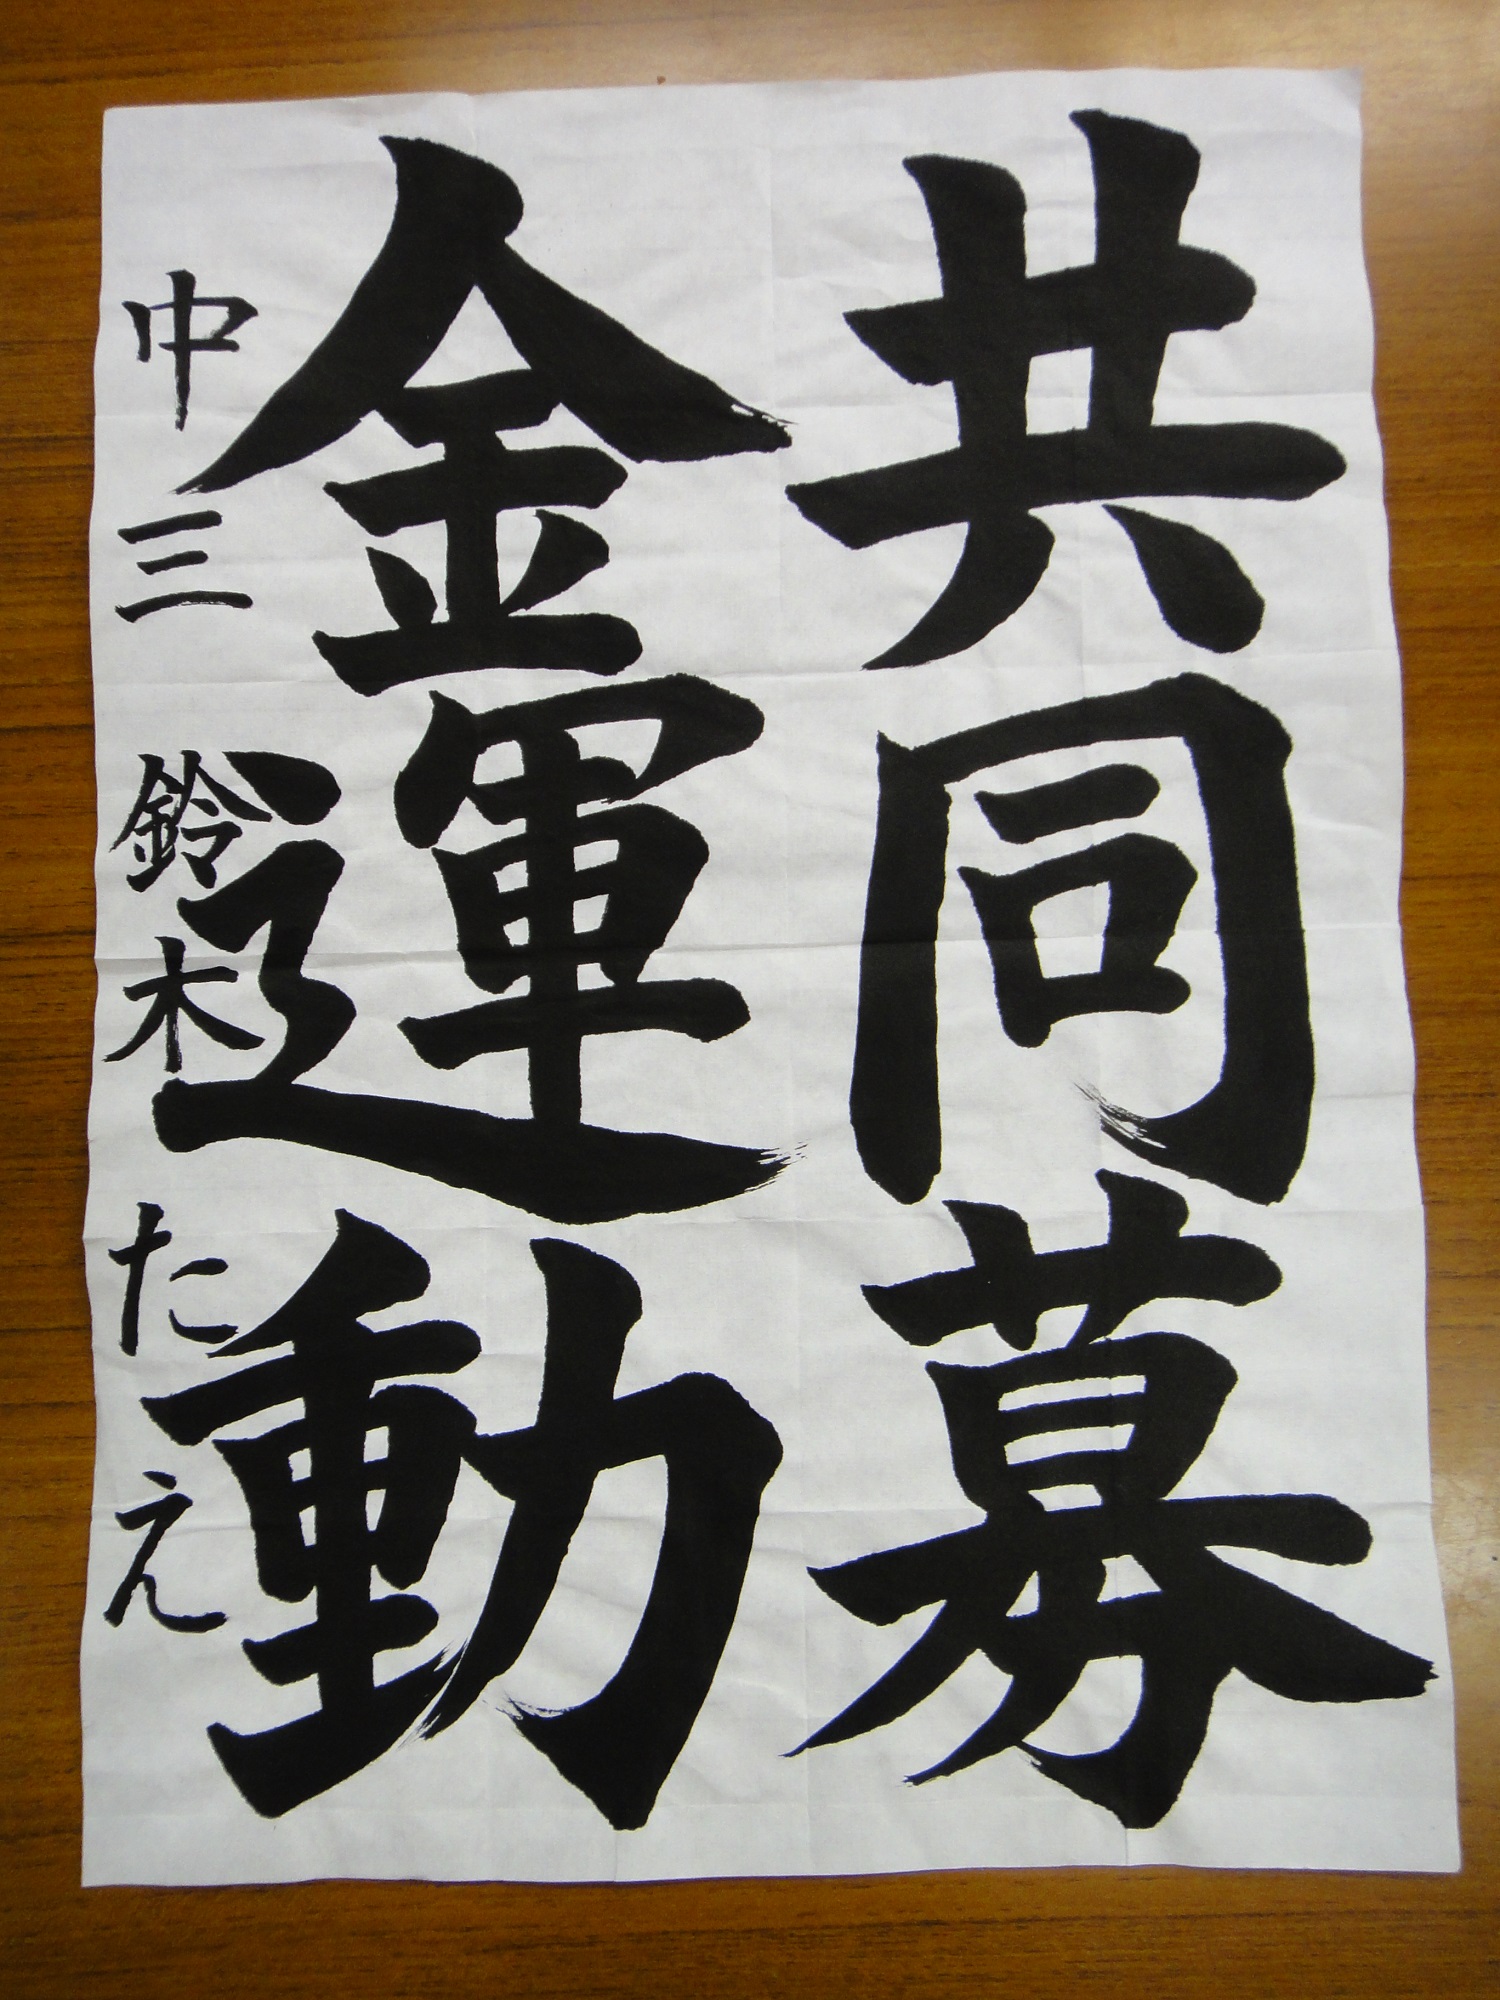 共同募
金運動
中三 鈴木たえ